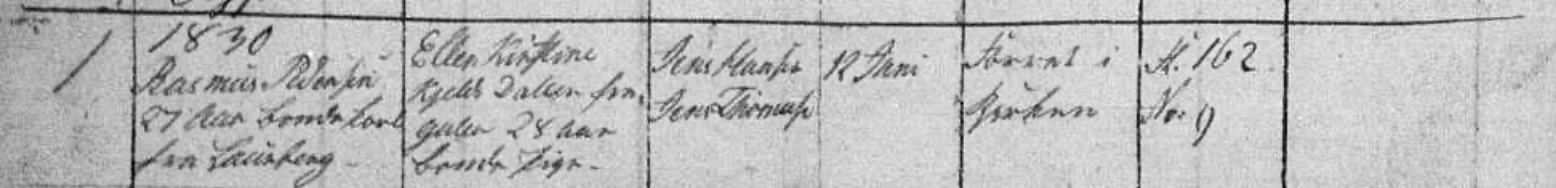 1
1830
Rasmus Pedersen
27 Aar bondekarl
fra Laurberg
Ellen Kirstine
Kjelds Datter fra
28 Aar
bonde Pige
Jens Hansen
Jens Thomasen
12 Juni
i
Kirken
162
No. 9